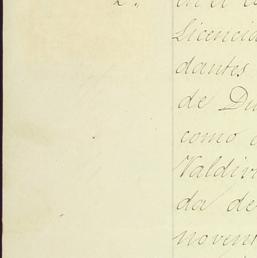 2.
en el
Licencia
dantes
de Du
como
Valdivi
da de
novem